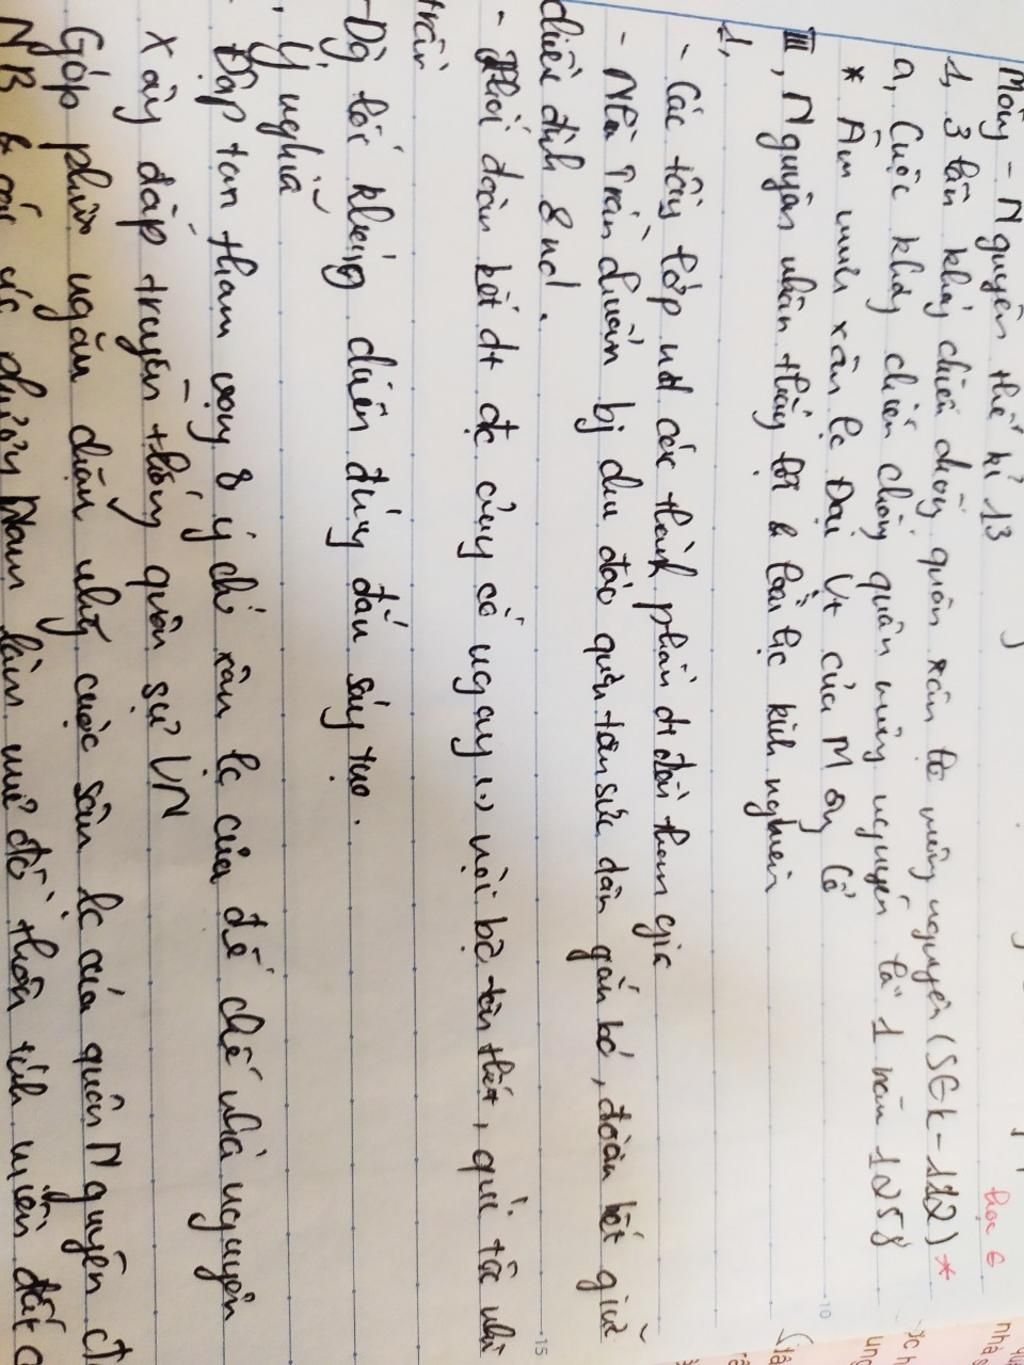 Mông - Nguyên thế kỉ 13
1, 3 lần kháng chiến chống quân xâm lc mông nguyên (SGK-112) *
a, Cuộc kháng chiến chống quân mông nguyên lần 1 năm 1258
* Âm mưu xâm lc Đại Vt của Mông Cổ
III, Nguyên nhân thắng lợi & bài học kinh nghiệm
1,
- Các tầng lớp nd các thành phần dt đều tham gia
- Nhà Trần chuẩn bị chu đáo quan tâm sức dân gắn bó, đoàn kết giữa
triều đình & nd.
- Khối đoàn kết dt đc củng cố ngay (.) nội bộ tôn thất, quí tộc nhà
trần
- Đg lối kháng chiến đúng đắn sáng tạo.
. Ý nghĩa
Đập tan tham vọng & ý chí xâm lc của đế chế nhà nguyên
Xây đắp truyền thống quân sự VN
Góp phần ngăn chặn những cuộc xâm lc của quân Nguyên đ
NB & các phương Nam, làm thôn tính miền đất
học 6
10
15